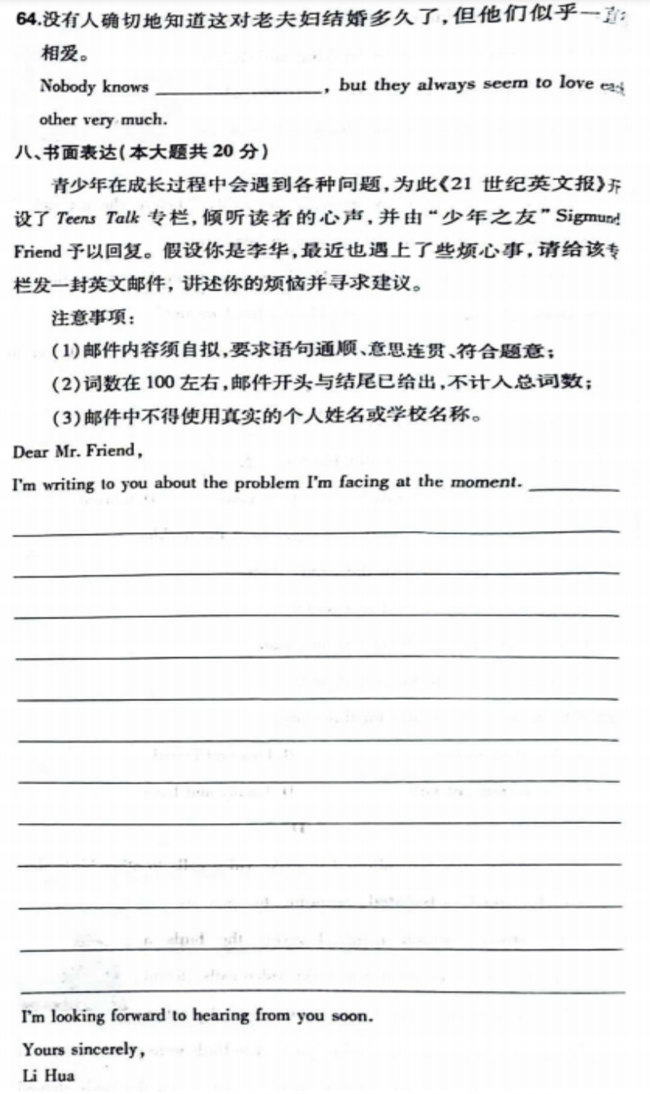 64.没有人确切地知道这对老夫妇结婚多久了,但他们似乎一直
相爱。
Nobody knows ____________, but they always seem to love each
other very much.
八、书面表达(本大题共 20 分)
青少年在成长过程中会遇到各种问题,为此《21 世纪英文报》开
设了 Teens Talk 专栏,倾听读者的心声,并由“少年之友”Sigmund
Friend 予以回复。假设你是李华,最近也遇上了些烦心事,请给该专
栏发一封英文邮件,讲述你的烦恼并寻求建议。
注意事项:
(1)邮件内容须自拟,要求语句通顺、意思连贯、符合题意;
(2)词数在 100 左右,邮件开头与结尾已给出,不计入总词数;
(3)邮件中不得使用真实的个人姓名或学校名称。
Dear Mr. Friend,
I'm writing to you about the problem I'm facing at the moment. ________
I'm looking forward to hearing from you soon.
Yours sincerely,
Li Hua